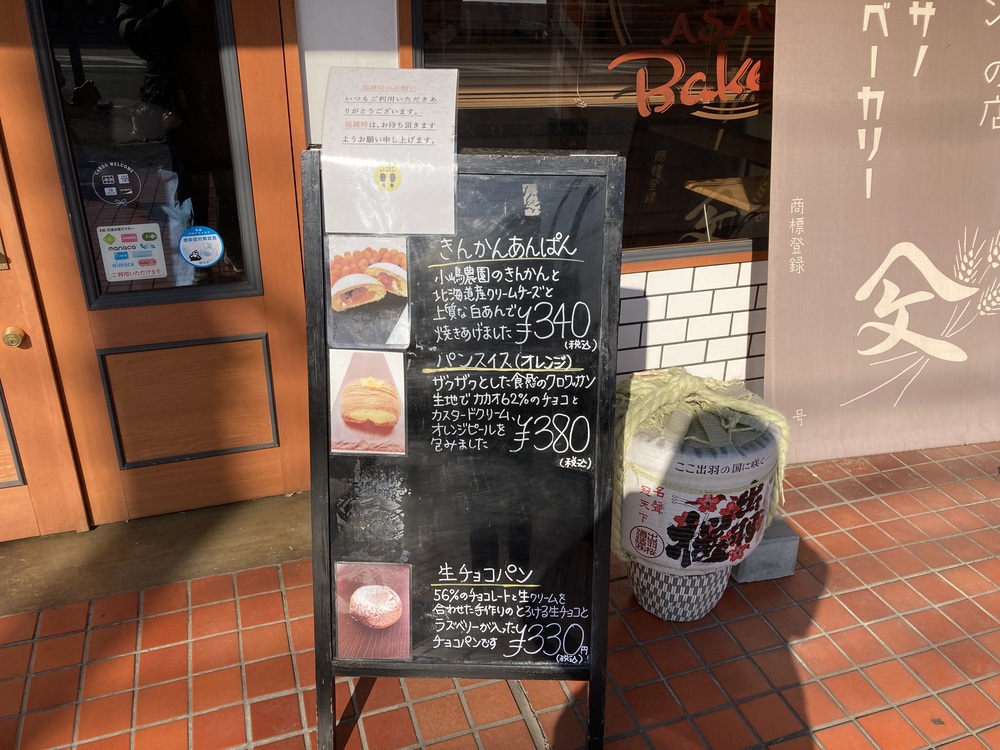 混雑時のお願い
いつもご利用いただきあ
りがとうございます。
混雑時は、お待ち頂きます
ようお願い申し上げます。
きんかんあんぱん
小嶋農園のきんかんと
北海道産クリームチーズと
上質な白あんで
焼きあげました
¥340
(税込)
パンスイス(オレンジ)
ザクザクとした食感のクロワッサン
生地でカカオ62%のチョコと
カスタードクリーム、
オレンジピールを
包みました
¥380
(税込)
生チョコパン
56%のチョコレートと生クリームを
合わせた手作りのとろける生チョコと
ラズベリーが入った
チョコパンです
¥330円
(税込)
CARDS WELCOME
manaca
nimoca
ご利用いただけます
Bake
ンの店
サノ
ベーカリー
商標登録
号
ここ出羽の国に咲く
名聲
冠天下
出羽桜